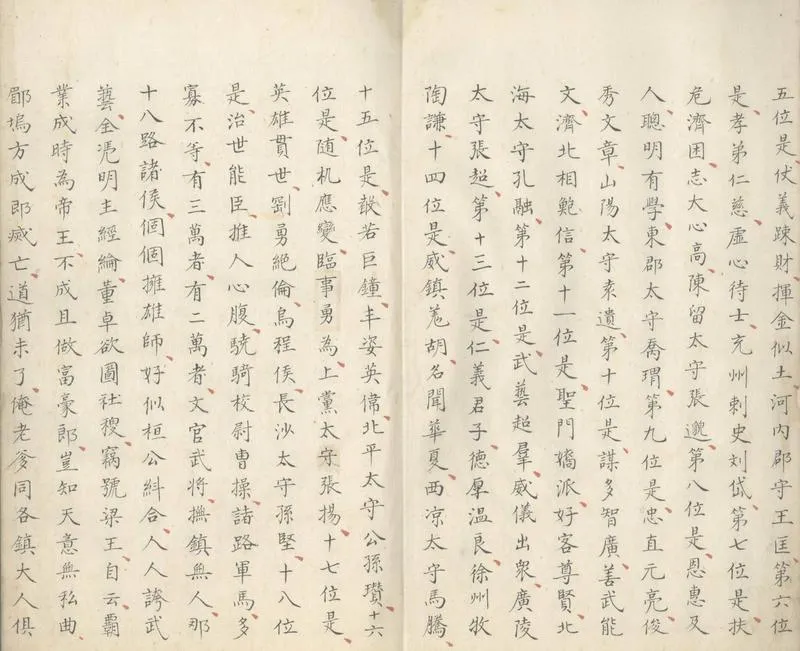 五位是仗義踈財揮金似土河內郡守王匡第六位
是孝弟仁慈虛心待士兗州刺史刘岱第七位是扶
危濟困志大心高陳留太守張邈第八位是恩惠及
人聰明有學東郡太守喬瑁第九位是忠直元亮俊
秀文章山陽太守袁遺第十位是謀多智廣善武能
文濟北相鮑信第十一位是聖門嬌派好客尊賢北
海太守孔融第十二位是武藝超羣威儀出衆廣陵
太守張超第十三位是仁義君子德厚溫良徐州牧
陶謙十四位是威鎮羌胡名聞華夏西凉太守馬騰
十五位是若巨鐘丰姿英偉北平太守公孫瓚十六
位是随机應變臨事勇為上黨太守張揚十七位是
英雄貫世劉勇絕倫烏程侯長沙太守孫堅十八位
是治世能臣推人心腹驍騎校尉曹操諸路軍馬多
寡不等有三萬者有二萬者文官武將撫鎮無人那
十八路諸侯個個擁雄師好似桓公糾合人人誇武
藝全凴明主經綸董卓欲圖社稷竊號梁王自云霸
業成時為帝王不成且做富豪郎豈知天意無私曲
郿塢方成即滅亡道猶未了俺老爹同各鎮大人俱